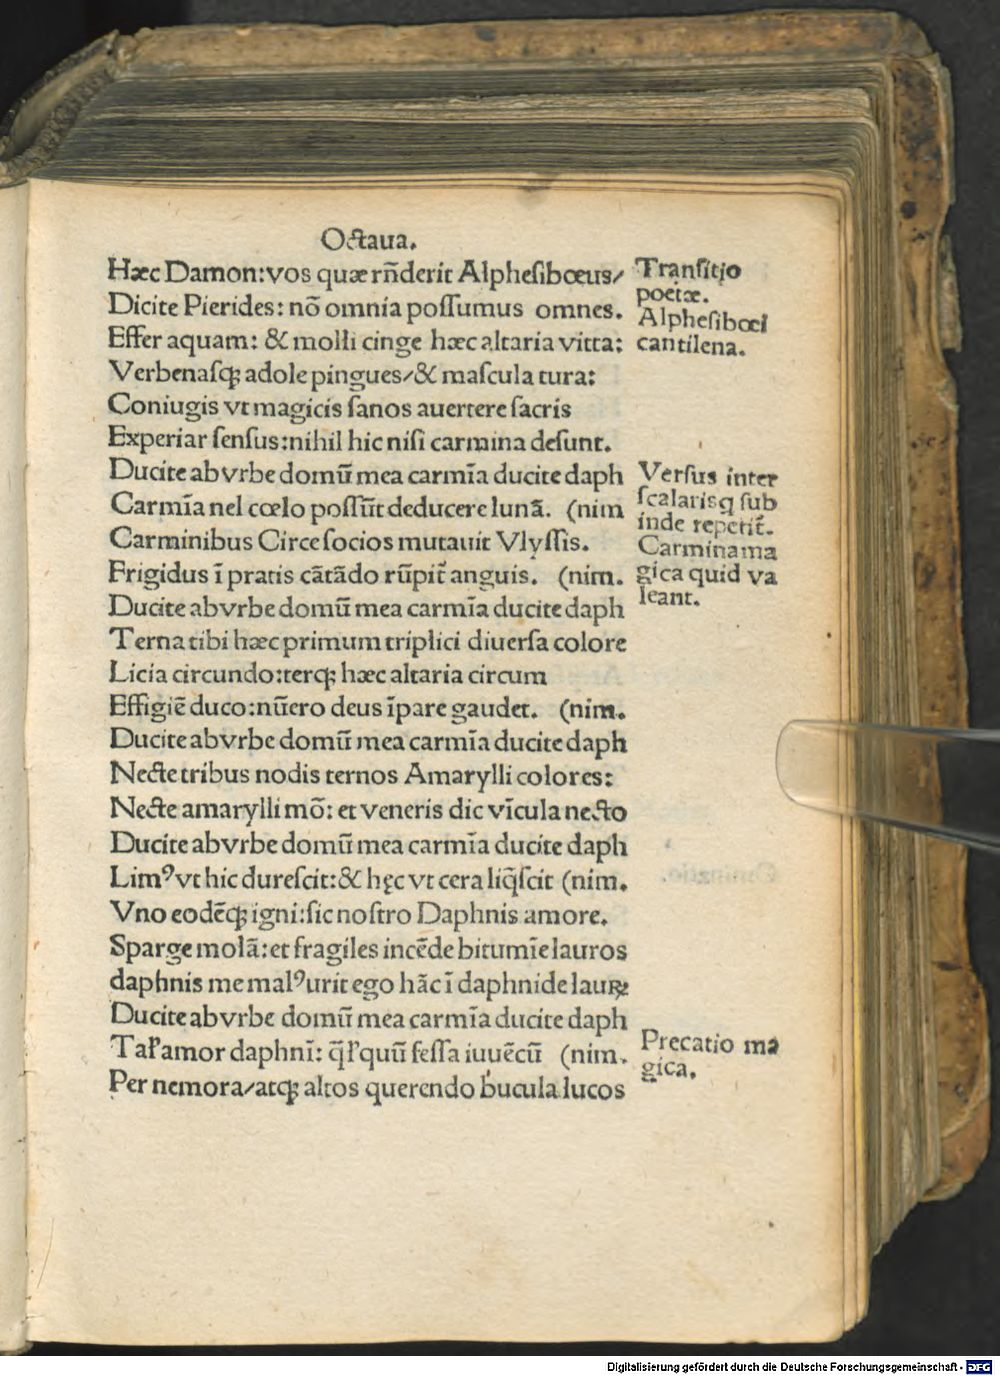 Octaua.
Hæc Damon:vos quæ rñderit Alphesibœus/
Dicite Pierides: nõ omnia possumus omnes.
Effer aquam: & molli cinge hæc altaria vitta:
Verbenasqꝫ adole pingues/& mascula tura:
Coniugis vt magicis sanos auertere sacris
Experiar sensus:nihil hic nisi carmina desunt.
Ducite ab vrbe domũ mea carmĩa ducite daph
Carmĩa nel cœlo possũt deducere lunã. (nim
Carminibus Circe socios mutauit Vlyssis.
Frigidus ĩ pratis cãtãdo rũpit᷑ anguis. (nim.
Ducite ab vrbe domũ mea carmĩa ducite daph
Terna tibi hæc primum triplici diuersa colore
Licia circundo:terqꝫ hæc altaria circum
Effigiẽ duco:nũero deus ĩpare gaudet. (nim.
Ducite ab vrbe domũ mea carmĩa ducite daph
Necte tribus nodis ternos Amarylli colores:
Necte amarylli mõ: et veneris dic vĩcula necto
Ducite ab vrbe domũ mea carmĩa ducite daph
Limꝰ vt hic durescit:& hęc vt cera liq̃scit (nim.
Vno eodẽqꝫ igni:sic nostro Daphnis amore.
Sparge molã:et fragiles incẽde bitumĩe lauros
daphnis me malꝰ urit ego hãc ĩ daphnide lauꝝ
Ducite ab vrbe domũ mea carmĩa ducite daph
Tal᷑ amor daphnĩ: q̃l᷑ quũ fessa iuuẽcũ (nim.
Per nemora/atqꝫ altos querendo bucula lucos
Transitio
poetæ.
Alphesibœi
cantilena.
Versus inter
scalarisq sub
inde repetit᷑.
Carmina ma
gica quid va
leant.
Precatio ma
gica.
Digitalisierung gefördert durch die Deutsche Forschungsgemeinschaft - DFG